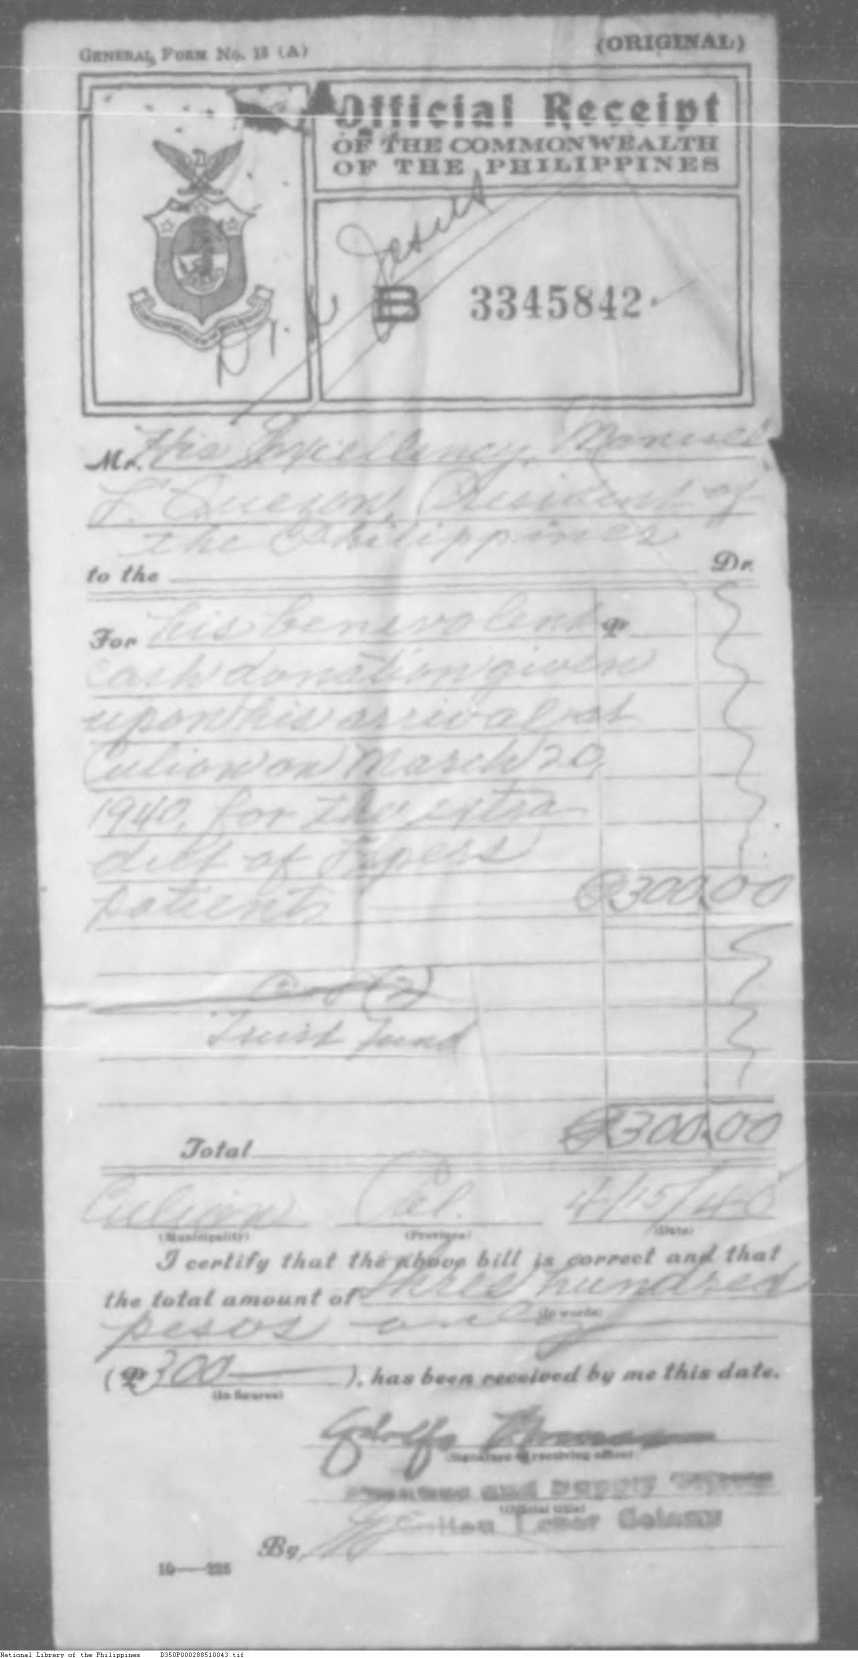 GENERAL FORM No. 13 (A)
(ORIGINAL)
Official Receipt
OF THE COMMONWEALTH
OF THE PHILIPPINES
Jesus
B 3345842
Mr. His Excellency, Manuel
L. Quezon, President of
the Philippines
to the Dr.
For his benevolent ₱
cash donation given
upon his arrival at
Culion on March 20,
1940, for the extra
diet of lepers
patients ₱300.00
Trust Fund
Total ₱300.00
Culion Pal. 4/15/40
(Municipality) (Province) (Date)
I certify that the above bill is correct and that
the total amount of three hundred
(In words)
pesos only
(₱300 ), has been received by me this date.
(In figures)
Adolfo
(Signature of receiving officer)
and Supply Officer
(Official title)
Culion Leper Colony
By
10—225
National Library of the Philippines D350P000288510043.tif